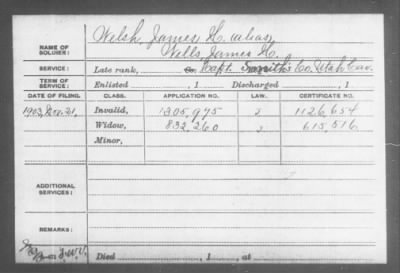 Welsh, James H. alias,
NAME OF SOLDIER: Wells, James H.
SERVICE: Late rank, Co. Capt. Smith's Co. Utah Cav.
TERM OF SERVICE: Enlisted , 1 Discharged , 1
DATE OF FILING. CLASS. APPLICATION NO. LAW. CERTIFICATE NO.
1903, Dec. 21, Invalid, 1305,975 1126,654
Widow, 832,260 615,516
Minor,
ADDITIONAL SERVICES:
REMARKS:
Died , 1 , at